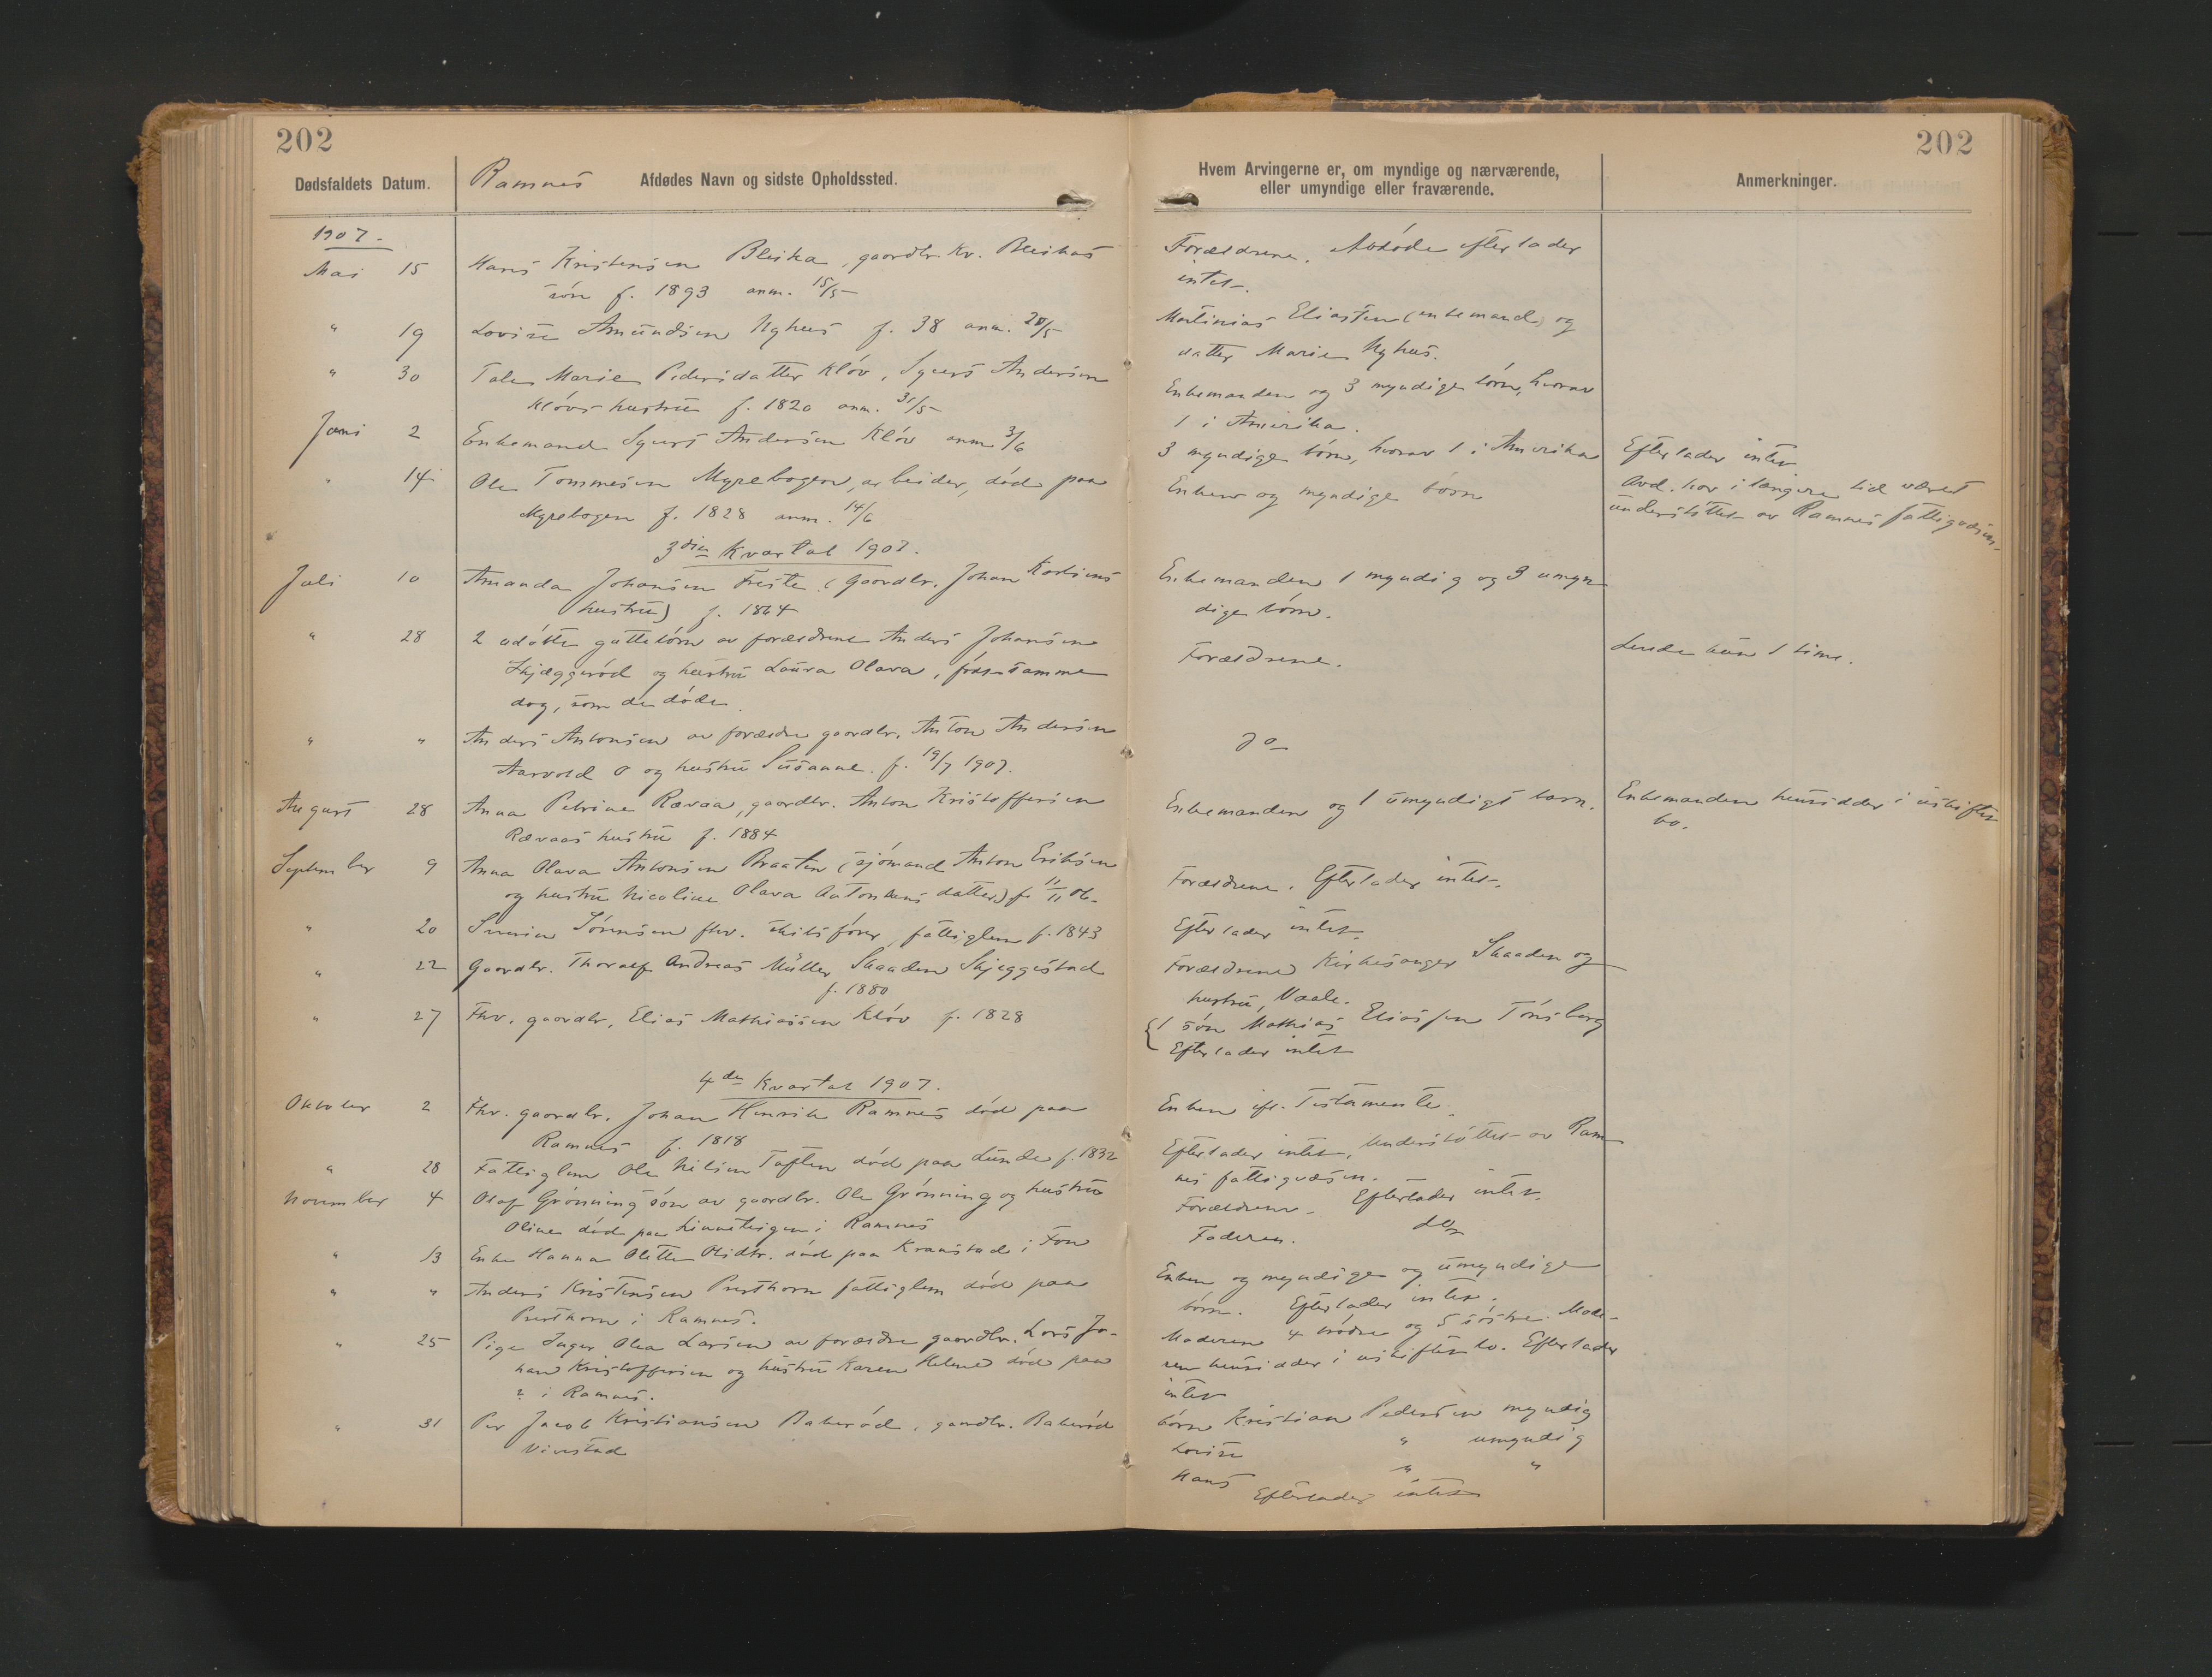 202
Dødsfaldets Datum.
Ramnes Afdødes Navn og sidste Opholdssted.
1907.
Mai 15 Hans Kristensen Bleika, gaardbr. Kr. Bleikas
søn f. 1893 anm. 15/5
" 19 Lovise Amundsen Nyhus f. 38 anm. 20/5
" 30 Tale Marie Pedersdatter Kløv, Syvers Andersen
Kløvs hustru f. 1820 anm. 31/5
Juni 2 Enkemand Syvers Andersen Kløv anm 3/6
" 14 Ole Tommesen Myrebogen, arbeider, død paa
Myrebogen f. 1828 anm. 14/6
3die Kvartal 1907.
Juli 10 Amanda Johansen Freste (gaardbr. Johan Karlsens
hustru) f. 1864
" 28 2 udøbte guttebørn av forældrene Anders Johansen
Skjæggerød og hustru Laura Olava, født samme
dag, som de døde.
" " Anders Antonsen av forældre gaardbr. Anton Andersen
Aarvold ø og hustru Susanne. f. 19/7 1907.
August 28 Anna Petrine Rævaa, gaardbr. Anton Kristoffersen
Rævaas hustru f. 1884
September 9 Anna Olava Antonsen Braaten (sjømand Anton Eriksen
og hustru Nicoline Olava Antonsens datter) f. 11/11 06.
" 20 Sørensen fhv. skibsfører, fattiglem f. 1843
" 22 Gaardbr. Thoralf Andreas Müller Skaaden Skjeggestad
f. 1880
" 27 Fhv. gaardbr. Elias Mathiassen Kløv f. 1828
4de Kvartal 1907.
Oktober 2 Fhv. gaardbr. Johan Henrik Ramnes død paa
Ramnes f. 1818
" 28 Fattiglem Ole Nilsen Toften død paa Lunde f. 1832
November 4 Olaf Grønning søn av gaardbr. Ole Grønning og hustru
Oline død paa Linnesteigen i Ramnes
" 13 Enke Hanna Olette Olsdtr. død paa Kranstad i Fon
" " Anders Kristensen Presthorn fattiglem død paa
Presthorn i Ramnes.
" 25 Pige Inger Olea Larsen av forældre gaardbr. Lars Jo-
han Kristoffersen og hustru Karen Helene død paa
? i Ramnes.
" 31 Per Jacob Kristiansen Bakerød, gaardbr. Bakerød
Vivestad
202
Hvem Arvingerne er, om myndige og nærværende,
eller umyndige eller fraværende.
Anmerkninger.
Forældrene. Avdøde efterlader
intet.
Martinius Eliassen (enkemand) og
datter Marie Nyhus.
Enkemanden og 3 myndige børn, hvorav
1 i Amerika.
3 myndige børn, hvorav 1 i Amerika
Efterlader intet.
Enken og myndige børn
Avd. har i længere tid været
understøttet av Ramnes fattigvæsen.
Enkemanden 1 myndig og 3 umyn
dige børn.
Forældrene.
Levede kun 1 time.
do
Enkemanden og 1 umyndigt barn.
Enkemanden hensidder i uskiftet
bo.
Forældrene. Efterlader intet.
Efterlader intet.
Forældrene Kirkesanger Skaaden og
hustru, Vaale.
1 søn Mathias Eliassen Tønsberg
Efterlader intet
Enken ifl. Testamente.
Efterlader intet, understøttet av Ram
nes fattigvæsen.
Forældrene. Efterlader intet.
Faderen. do
Enken og myndige og umyndige
børn. Efterlader intet.
Moderen 4 brødre og 5 søstre. Mode-
ren hensidder i uskiftet bo. Efterlader
intet
børn Kristian Pedersen myndig
Lovise " umyndig
Hans " "
Efterlader intet